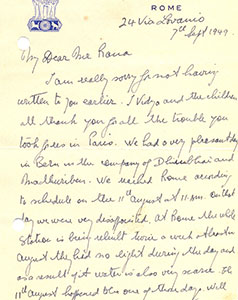 ROME
24 Via Lovanio
7th Sept 1949
My Dear Mr Rana
I am really sorry for not having
written to you earlier. I Vidya and the children
all thank you for all the trouble you
took for us in Paris. We had a very pleasant day
in Bern in the company of Dhirubhai and
Madhuriben. We reached Rome according
to schedule on the 11th August at 11 pm. On that
day we were very disappointed, at Rome the
Station is being rebuilt twice a week at
August the had no light during the day and
as a result of it water is also very scarce. The
11th August happened to be one of those days. Will